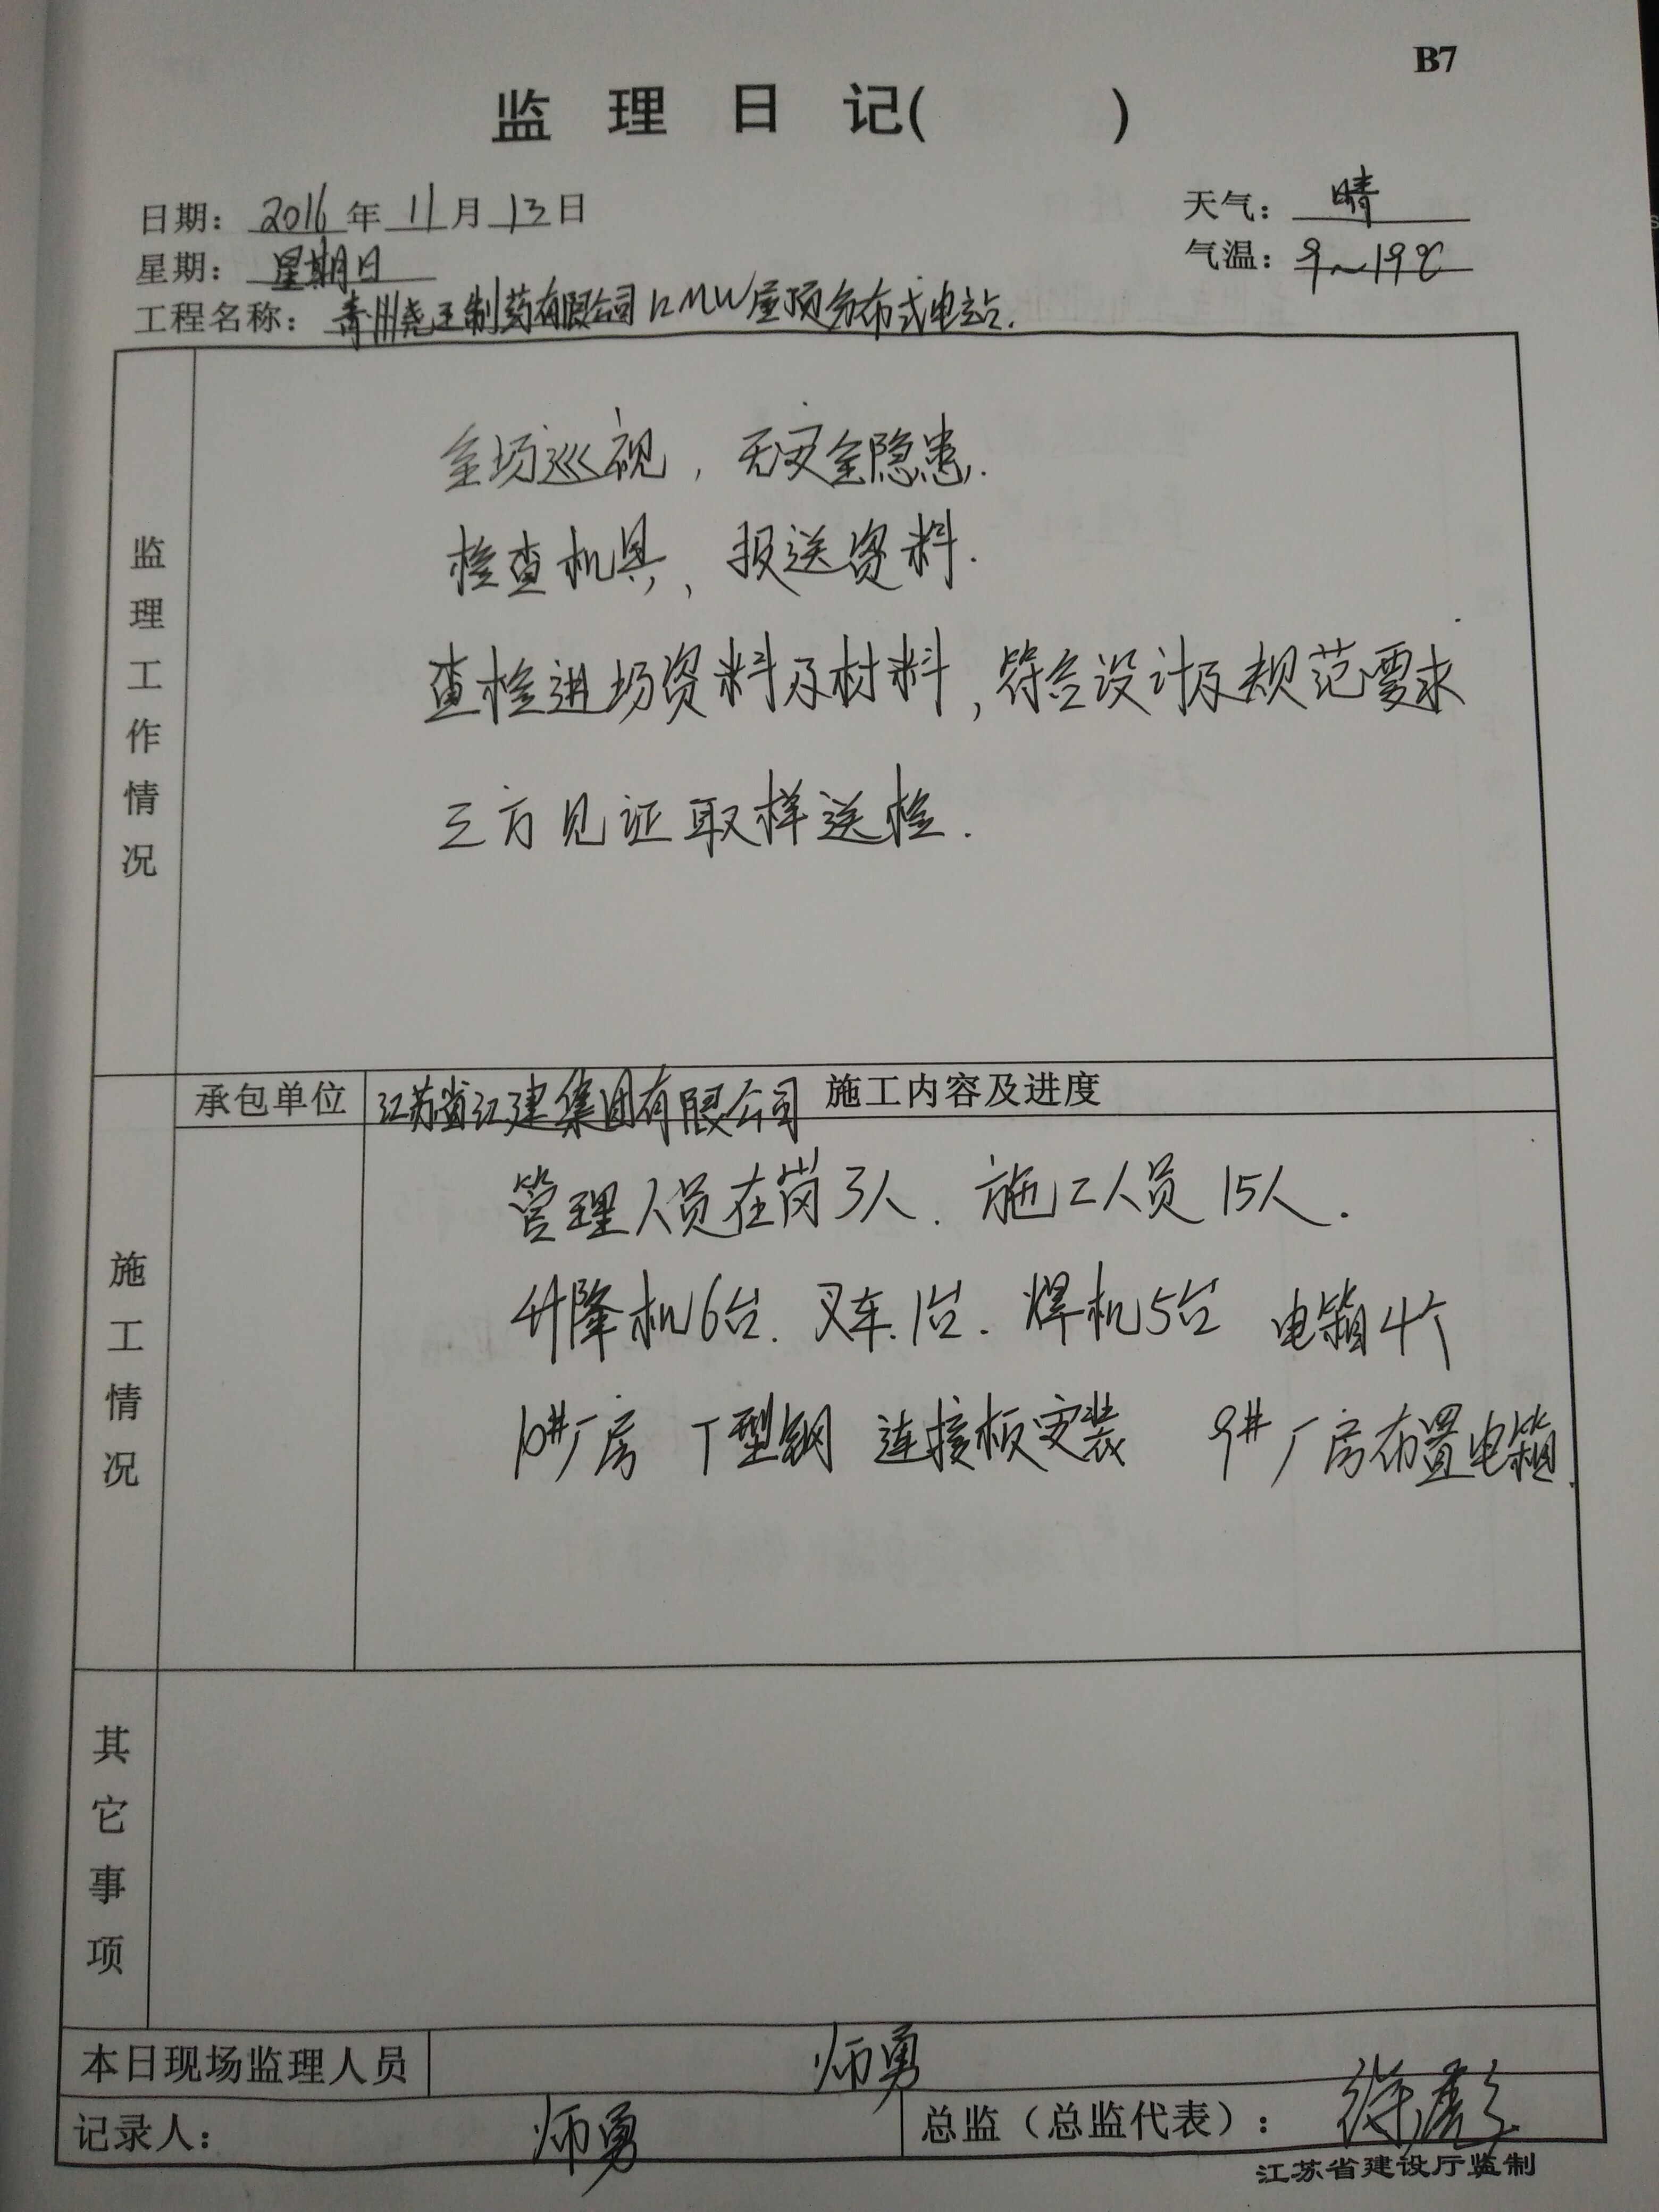 B7
监理日记( )
日期：2016年11月13日
天气：晴
星期：星期日
气温：9~19℃
工程名称：青州尧王制药有限公司12MW屋顶分布式电站.
监理工作情况
全场巡视，无安全隐患.
检查机具、报送资料.
查检进场资料及材料，符合设计及规范要求
三方见证取样送检.
施工情况
承包单位
江苏省江建集团有限公司 施工内容及进度
管理人员在岗3人. 施工人员15人.
升降机6台. 叉车.1台. 焊机5台 电箱4个
10#厂房 T型钢 连接板安装 9#厂房布置电箱.
其它事项
本日现场监理人员 师勇
记录人： 师勇
总监（总监代表）： 徐
江苏省建设厅监制